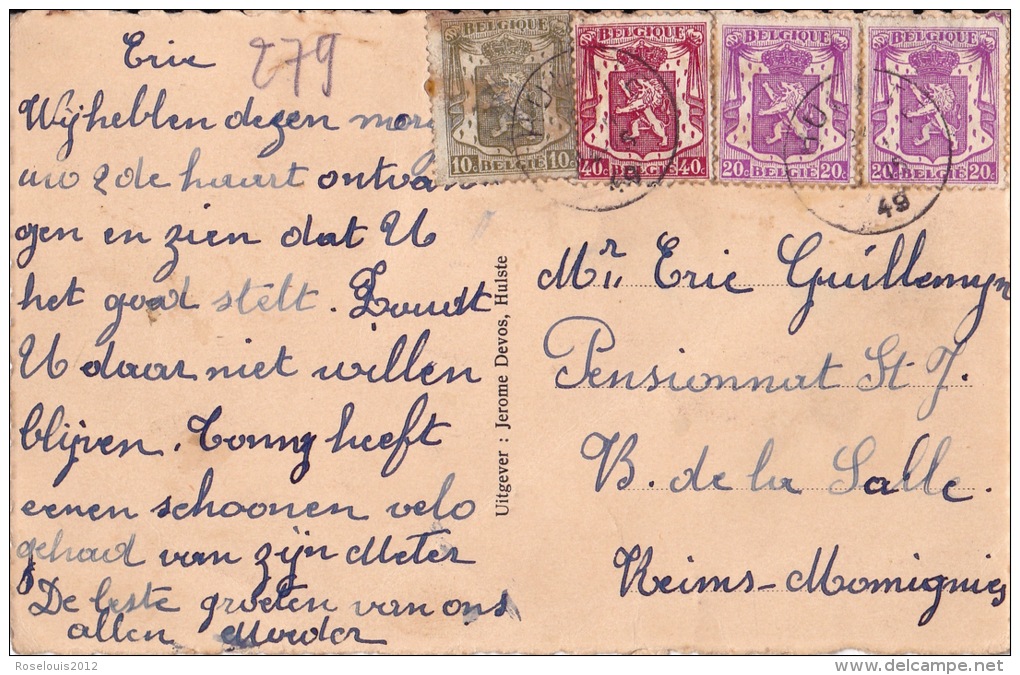 Eric
279
Wij hebben dezen mor
uw 2de kaart ontvan
gen en zien dat U
het goed stelt. Zoudt
U daar niet willen
blijven. Tonny heeft
eenen schoonen velo
gehad van zijn Meter
De beste groeten van ons
allen Moeder
Uitgever : Jerome Devos, Hulste
BELGIQUE
10c BELGIE 10c
BELGIQUE
40c BELGIË 40c
BELGIQUE
20c BELGIË 20c
BELGIQUE
20c BELGIË 20c
49
49
Mr. Eric Guillemyn
Pensionnat St J.
B. de la Salle.
Reims-Momignies
Roselouis2012
delcampe.net